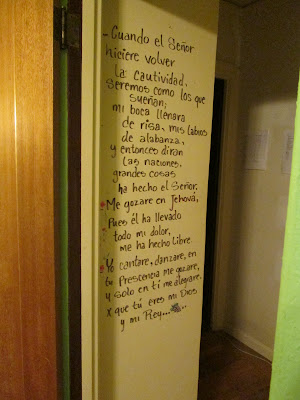 - Cuando el Señor
hiciere volver
la cautividad,
seremos como los que
sueñan;
mi boca llenara
de risa, mis labios
de alabanza,
y entonces diran
las naciones,
grandes cosas
ha hecho el Señor,
Me gozare en Jehová,
Pues él ha llevado
todo mi dolor,
me ha hecho libre
Yo cantare, danzare, en
tu Prescencia me gozare,
y solo en ti me alegrare,
x que tú eres mi Dios
y mi Rey...